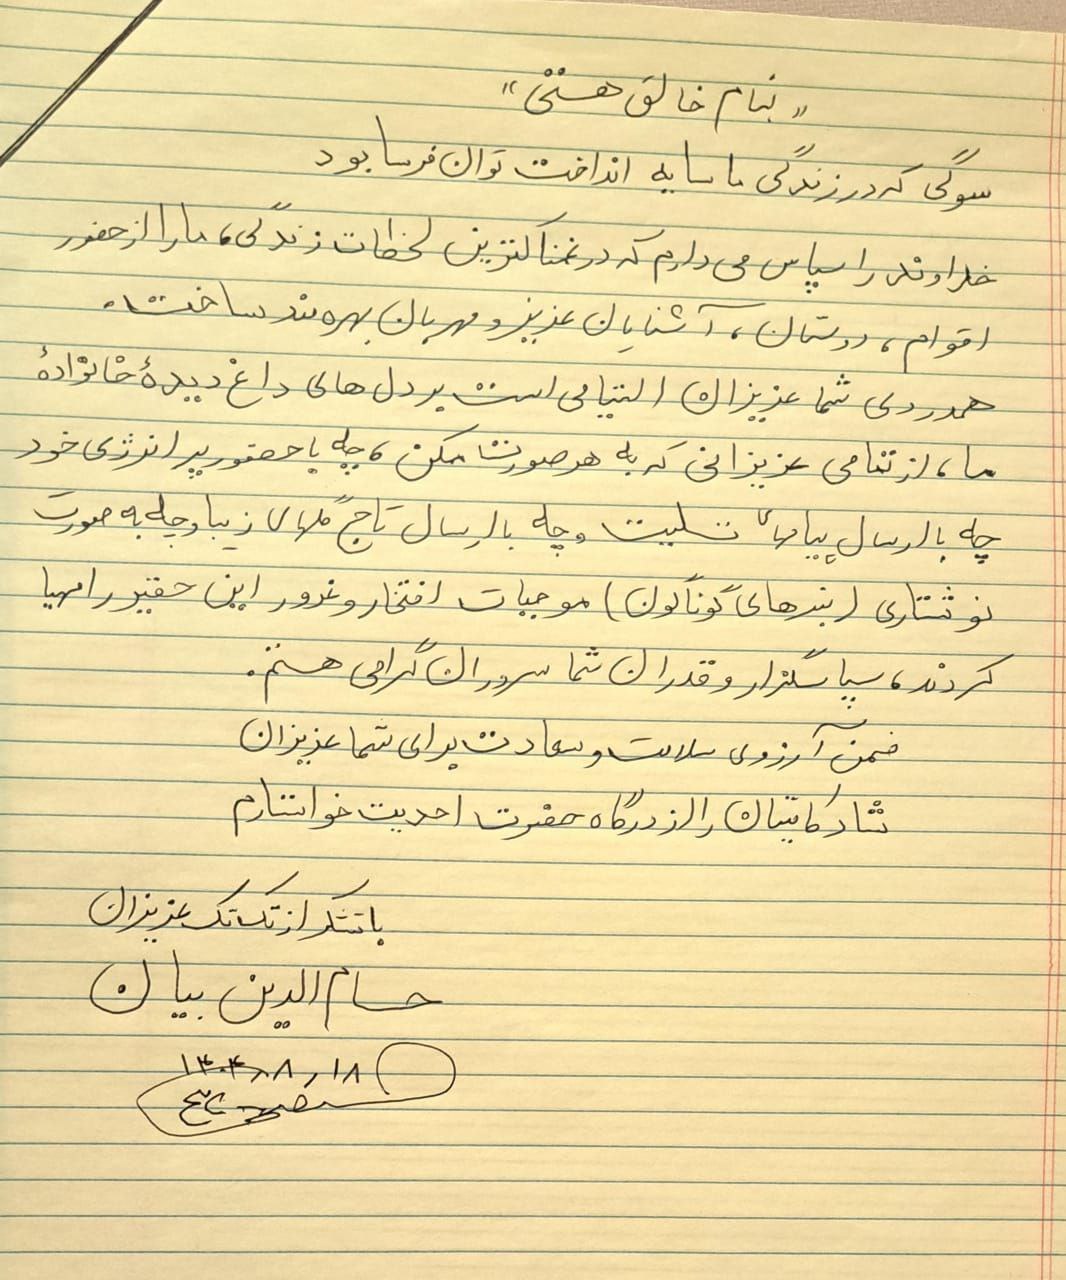 « بنام خالق هستی »
سوگی که در زندگی ما سایه انداخت توان فرسا بود
خداوند را سپاس می دارم که در غمناکترین لحظات زندگی، ما را از حضور
اقوام، دوستان، آشنایان عزیز و مهربان بهره مند ساخت.
همدردی شما عزیزان التیامی است بر دل های داغ دیدهٔ خانوادهٔ
ما، از تمامی عزیزانی که به هر صورت ممکن، چه با حضور پر انرژی خود
چه با ارسال پیامهای تسلیت و چه با ارسال تاج گلهای زیبا و چه به صورت
نوشتاری (بنرهای گوناگون) موجبات افتخار و غرور این حقیر را مهیا
کردند، سپاسگزار و قدردان شما سروران گرامی هستم.
ضمن آرزوی سلامت و سعادت برای شما عزیزان
شادکامیتان را از درگاه حضرت احدیت خواستارم
با تشکر از تک تک عزیزان
حسام الدین بیان
۱۴۰۴،۸،۱۸